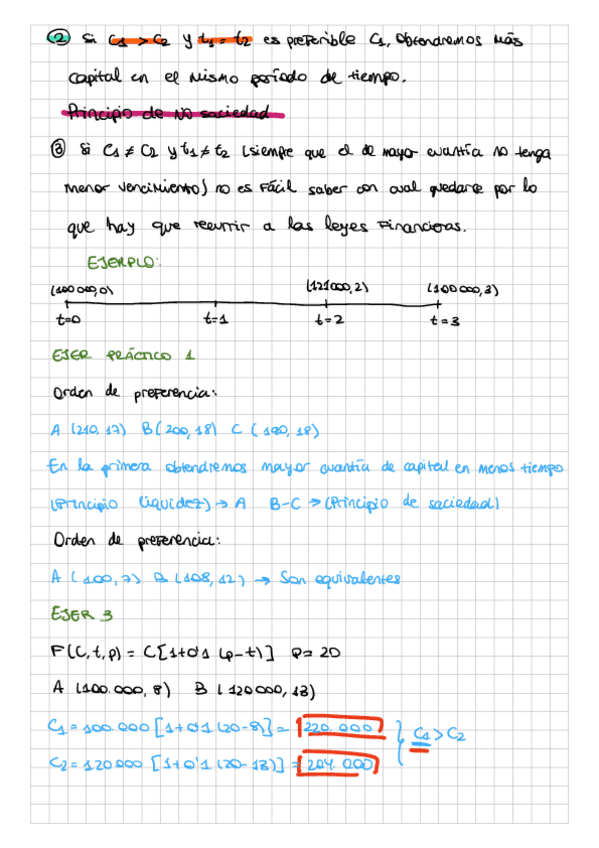 ② Si C1 > C2 y t1 = t2 es preferible C1, obtendremos más
capital en el mismo período de tiempo.
Principio de no saciedad
③ Si C1 ≠ C2 y t1 ≠ t2 (siempre que el de mayor cuantía no tenga
menor vencimiento) no es fácil saber con cual quedarse por lo
que hay que recurrir a las leyes Financieras.
EJEMPLO:
(100000,0) (121000,2) (100000,3)
t=0 t=1 t=2 t=3
EJER PRÁCTICO 1
Orden de preferencia:
A (210, 17) B (200, 18) C (190, 18)
En la primera obtendremos mayor cuantía de capital en menos tiempo
(Principio liquidez) → A B-C → (Principio de saciedad)
Orden de preferencia:
A (100, 7) B (108, 12) → Son equivalentes
EJER 3
F(C, t, p) = C[1+0'1 (p-t)] P= 20
A (100.000, 8) B (120000, 13)
C1 = 100.000 [1+0'1 (20-8)] = 220.000 } C1 > C2
C2 = 120.000 [1+0'1 (20-13)] = 204.000